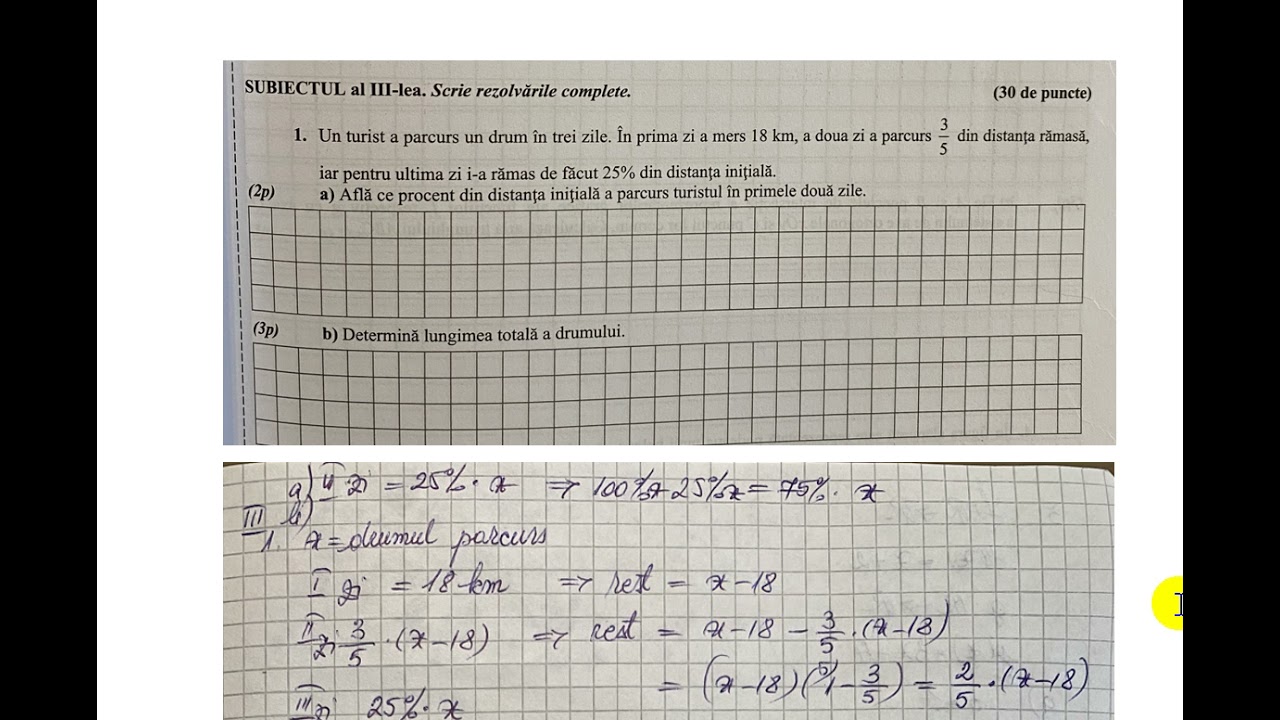 SUBIECTUL al III-lea. Scrie rezolvările complete. (30 de puncte)
1. Un turist a parcurs un drum în trei zile. În prima zi a mers 18 km, a doua zi a parcurs 3/5 din distanța rămasă,
iar pentru ultima zi i-a rămas de făcut 25% din distanța inițială.
(2p) a) Află ce procent din distanța inițială a parcurs turistul în primele două zile.
(3p) b) Determină lungimea totală a drumului.
a) zi = 25% · x ⇒ 100%x-25%x = 75% · x
III b)
1. x = drumul parcurs
I zi = 18 km ⇒ rest = x - 18
II zi 3/5 · (x - 18) ⇒ rest = x - 18 - 3/5 · (x - 18)
= (x - 18)(5)1 - 3/5) = 2/5 · (x - 18)
III zi 25% · x